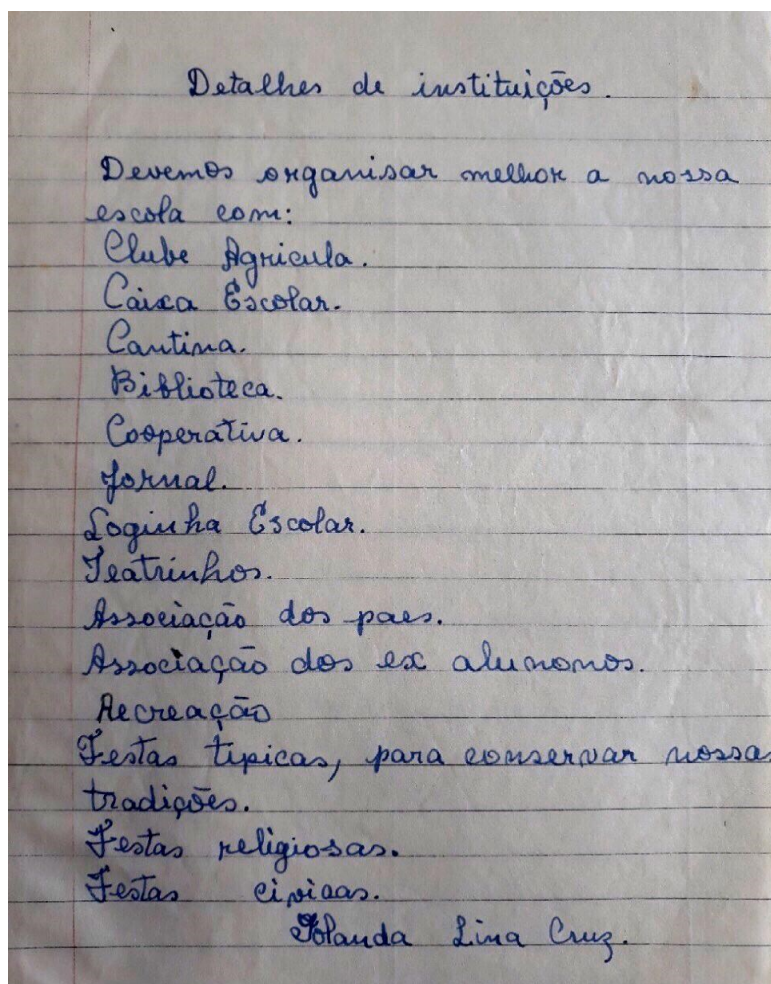 Detalhes de instituições.
Devemos organisar melhor a nossa
escola com:
Clube Agricula.
Caixa Escolar.
Cantina.
Biblioteca.
Cooperativa.
Jornal.
Loginha Escolar.
Teatrinhos.
Associação dos paes.
Associação dos ex alunonos.
Recreação
Festas tipicas, para conservar nossas
tradições.
Festas religiosas.
Festas civicas.
Iolanda Lina Cruz.